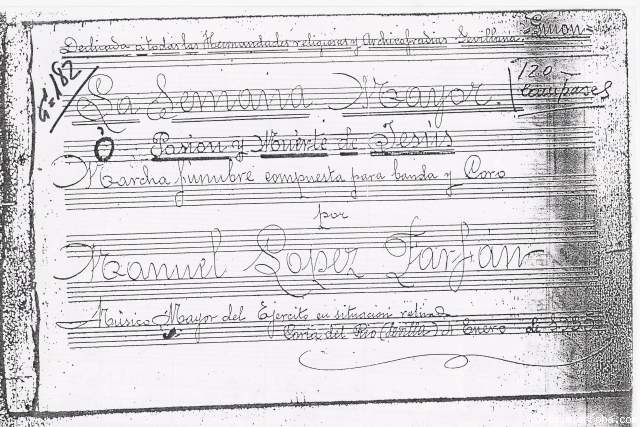 Dedicada a todas las Hermandades religiosas y Archicofradias Sevillanas
Gª=182
La Semana Mayor.
120
Compases
Ó Pasion y Muerte de Jesús
Marcha fúnebre compuesta para banda y Coro
por
Manuel Lopez Farfán
Músico Mayor del Ejercito en situacion
Coria del Rio (Sevilla) Enero de